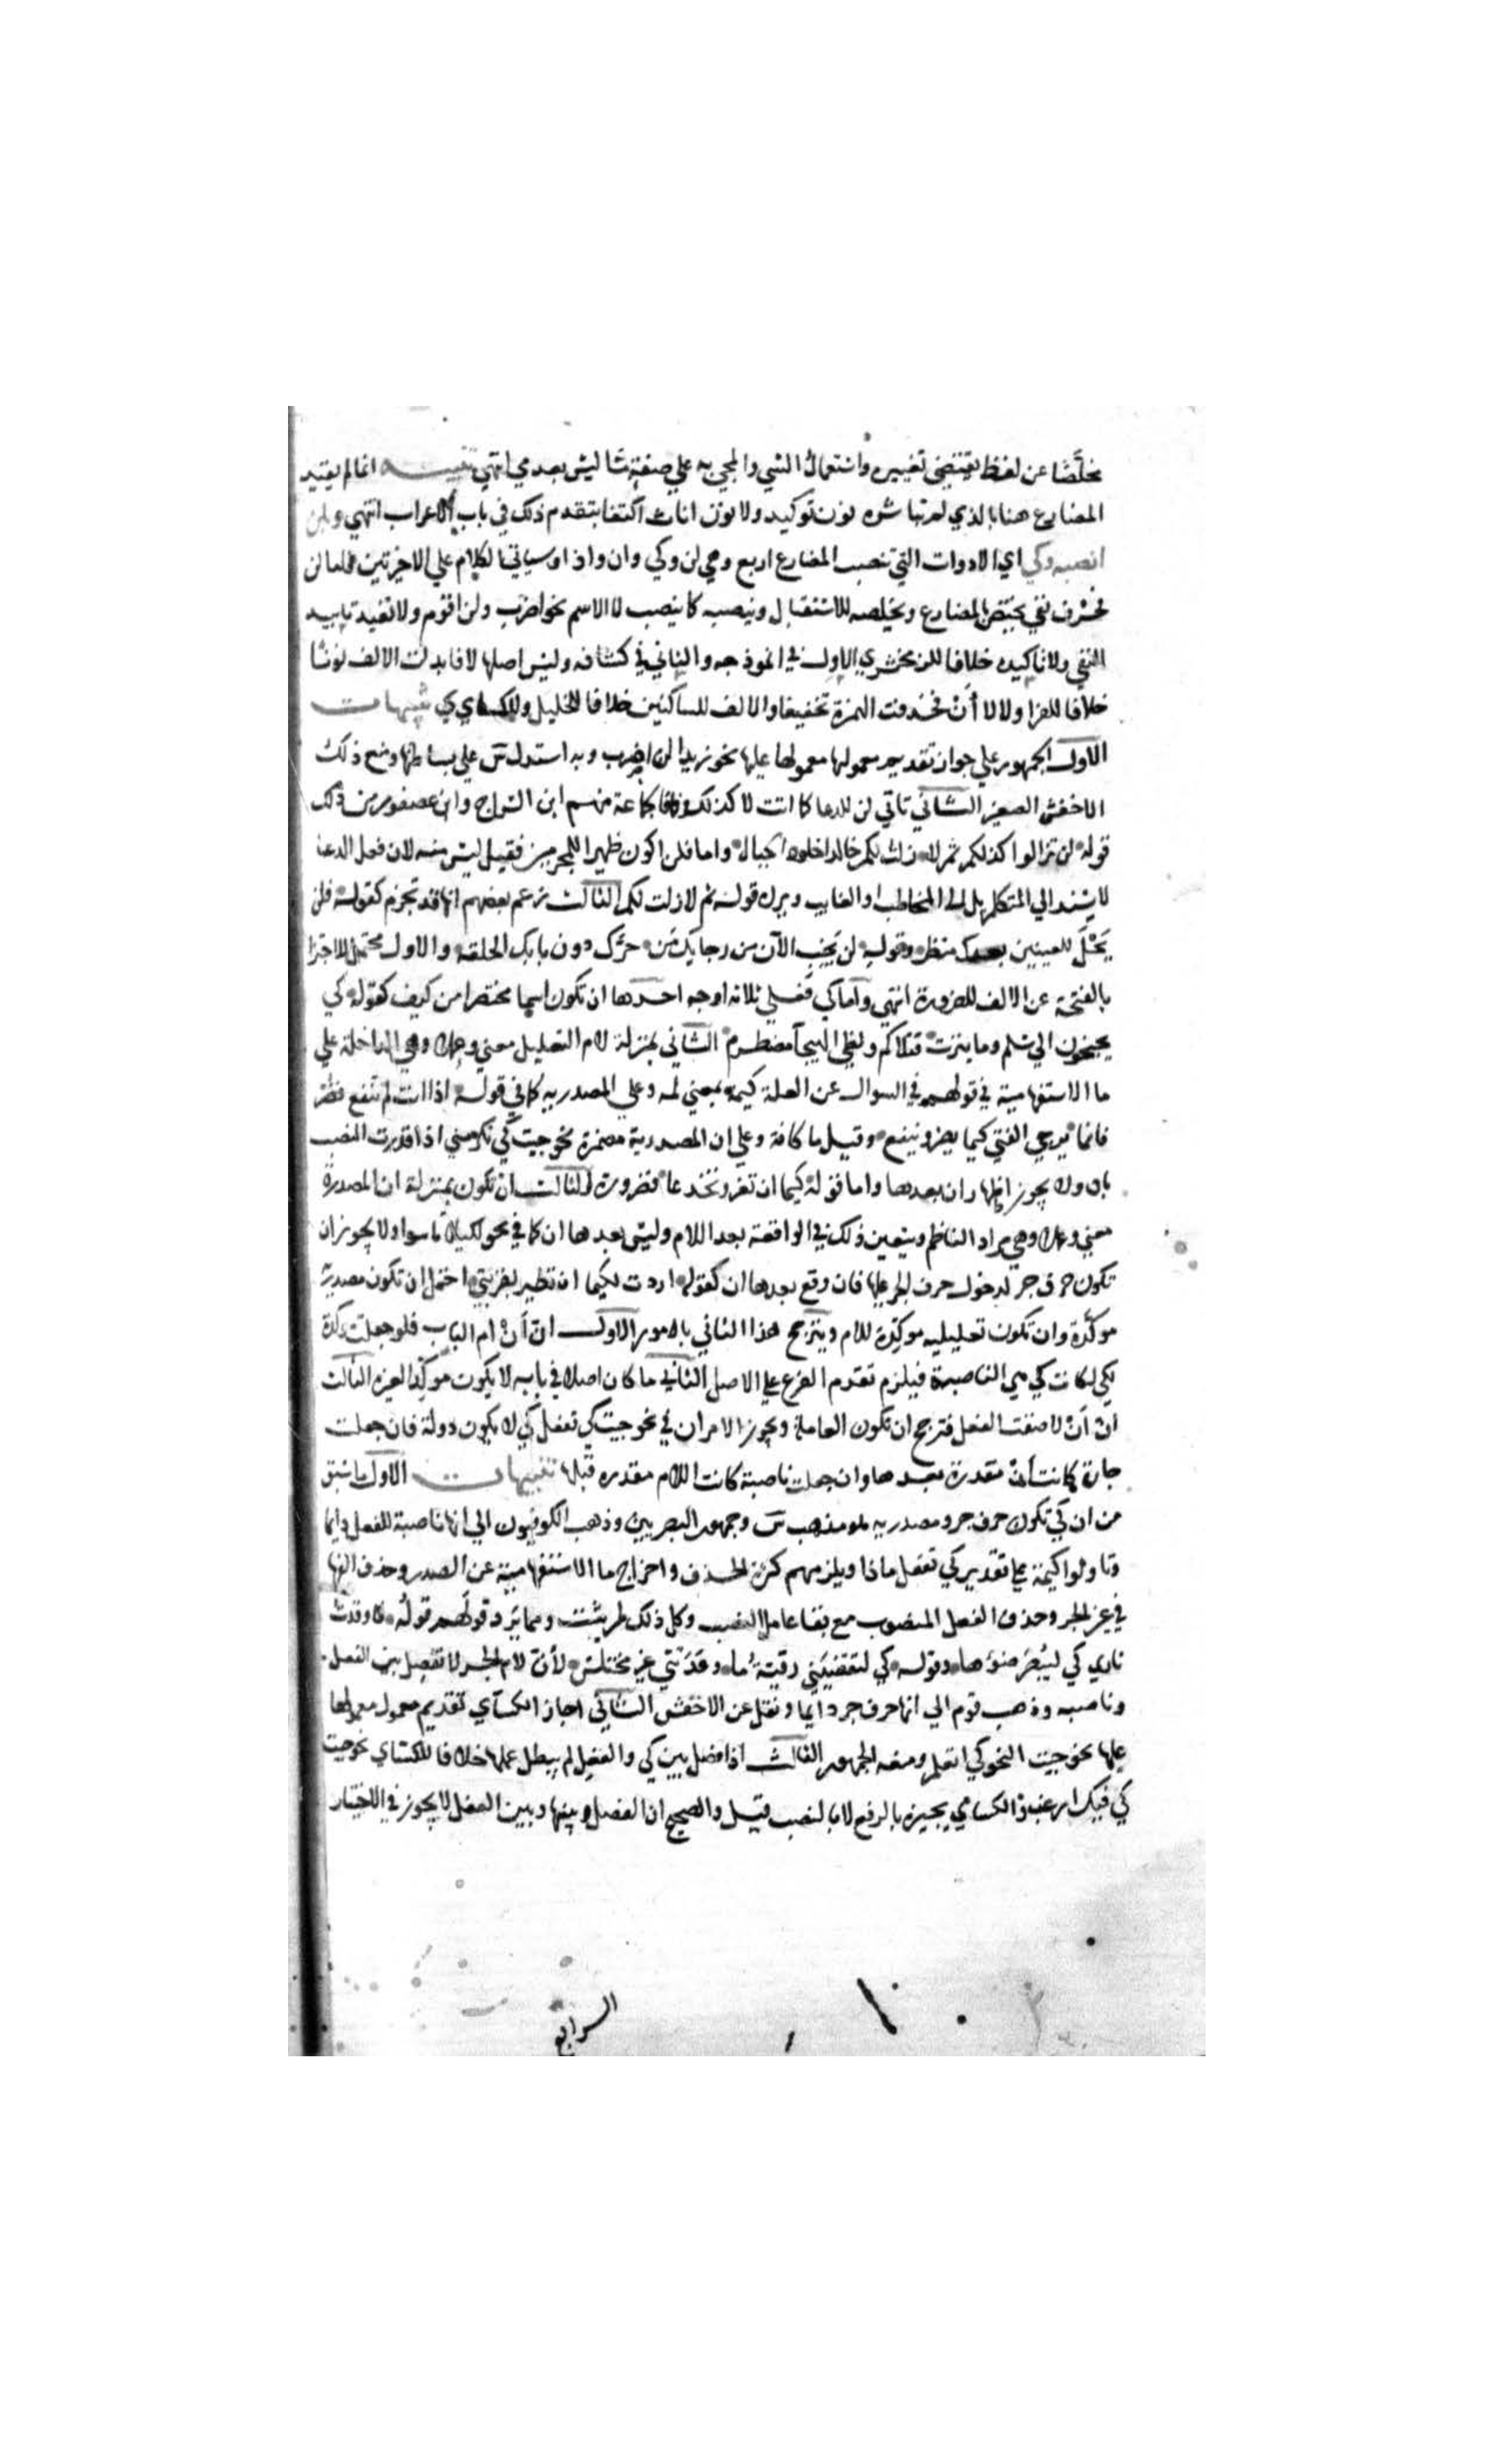 مخلصا عن لفظ يقتضي تغييره واستعمال الشي والمجي به علي صفة مثا ليس بعدمي انتهي تنبيه انما لم يقيد
المضارع هنا بالذي لم تباشره نون توكيد ولا نون اناث اكتفا بتقدم ذلك في باب الاعراب انتهي وبلن
انصبه وكي اي الادوات التي تنصب المضارع اربع وهي لن وكي وان واذا وسياتي الكلام علي الاخيرتين فاما لن
فحرف نفي يختص بالمضارع ويخلصه للاستقبال وينصبه كا ينصب لا الاسم نحو اضرب ولن اقوم ولا تفيد تابيد
النفي ولا تاكيده خلافا للزمخشري الاول في انموذجه والثاني في كشافه وليس اصلها لا فابدلت الالف نونا
خلافا للفرا ولا لا أن فحذفت الهمزة تخفيفا والالف للساكنين خلافا للخليل وللكساي تنبيهات
الاول الجمهور علي جواز تقديم معمولها معمولها عليها نحو زيدا لن اضرب وبه استدل س علي بساطتها ومنع ذلك
الاخفش الصغير الثاني تاتي لن للدعا كا اتت لا كذلك وفاقا لجماعة منهم ابن السراج وابن عصفور من ذلك
قوله لن تزالوا كذلكم ثم لا زلت لكم خالدا خلود الجبال واما فلن اكون ظهيرا للمجرمين فقيل ليس منه لان فعل الدعا
لا يسند الي المتكلم بل الي المخاطب او الغايب ويرده قوله ثم لا زلت لكم الثالث زعم بعضهم انها قد تجزم كقوله فلن
يحل للعينين بعدك منظر وقوله لن يخب الآن من رجايك من حرك دون بابك الحلقه والاول محتمل للاجتزا
بالفتحة عن الالف للضرورة انتهي واما كي فعلي ثلاثه اوجه احدها ان تكون اسما مختصرا من كيف كقوله كي
يجنحون الي سلم وما يثرت قتلاكم ولظي الهيجا مضطرم الثاني بمنزلة لام التعليل معني وعملا وهي الداخلة علي
ما الاستفهامية في قولهم في السوال عن العلة كيمه بمعني لمه وعلي المصدريه كما في قوله اذا انت لم تنفع فضر
فانما يرجي الفتي كيما يضر وينفع وقيل ما كافة وعلي ان المصدرية مضمرة نحو جيت كي تكرمني اذا قدرت النصب
بان ولا يجوز اظهار ان بعدها واما قوله كيما ان تغر وتخدعا فضرورة الثالث ان تكون بمنزلة ان المصدرة
معني وعملا وهي مراد الناظم ويتعين ذلك في الواقعة بعد اللام وليس بعدها ان كما في نحو لكيلا تاسوا ولا يجوز ان
تكون حرف جر لدخول حرف الجر عليها فان وقع بعدها ان كقوله اردت لكيما ان تطير بقربتي احتمل ان تكون مصدرية
موكدة وان تكون تعليليه موكدة للام ويترجح هذا الثاني بامور الاول ان أن ام الباب فلو جعلت موكدة
لكي لكانت كي هي الناصبة فيلزم تقدم الفرع علي الاصل الثاني ما كان اصلا في بابه لا يكون موكدا لغيره الثالث
ان أن لاصقت الفعل فترجح ان تكون العاملة ويجوز الامران في نحو جيت كي تفعل كي لا يكون دولة فان جعلت
جارة كانت أن مقدرة بعدها وان جعلت ناصبة كانت اللام مقدره قبلها تنبيهات الاول ما سبق
من ان كي تكون حرف جر ومصدريه هو مذهب س وجمهور البصريين وذهب الكوفيون الي انها ناصبة للفعل دايما
وتاولوا كيمة علي تقدير كي تفعل ماذا ويلزمهم كثرة الحذف واخراج ما الاستفهامية عن الصدر وحذف الفها
في غير الجر وحذف الفعل المنصوب مع بقا عامل النصب وكل ذلك لم يثبت ومما يرد قولهم قوله فاوقدت
ناري كي ليبصر ضوءها وقوله كي لتقضيني رقية ما وعدتني غير مختلس لأن لام الجر لا تفصل بين الفعل
وناصبه وذهب قوم الي انها حرف جر دايما ونقل عن الاخفش الثاني اجاز الكساي تقديم معمول معمولها
عليها نحو جيت النحو كي اتعلم ومنعه الجمهور الثالث اذا فصل بين كي والفعل لم يبطل عملها خلافا للكساي نحو جيت
كي فيك ارغب والكساي يجيزه بالرفع لا بالنصب قيل والصحيح ان الفصل بينها وبين الفعل لا يجوز في الاختيار
الرابع